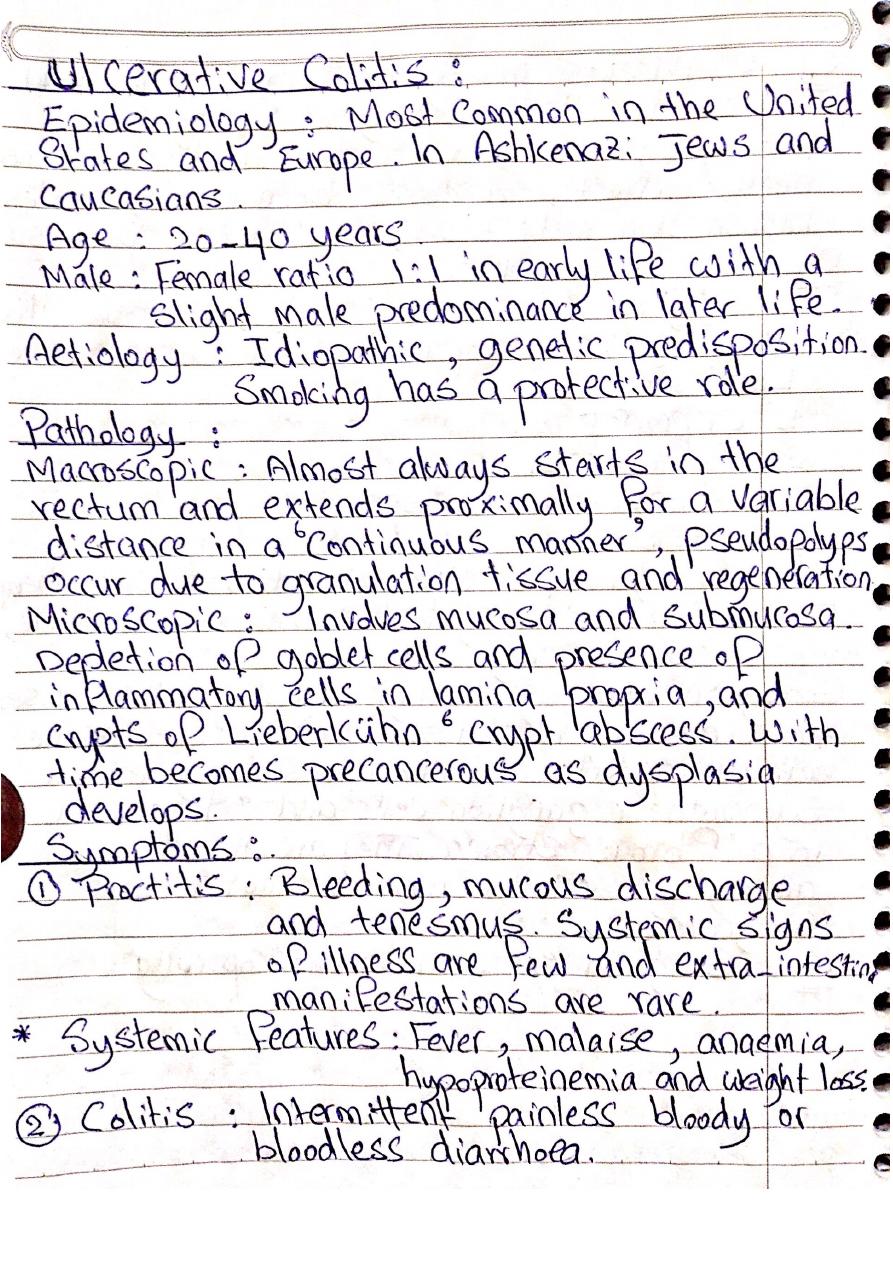 Ulcerative Colitis :
Epidemiology : Most Common in the United
States and Europe. In Ashkenazi Jews and
Caucasians.
Age : 20-40 years
Male : Female ratio 1:1 in early life with a
slight male predominance in later life.
Aetiology : Idiopathic, genetic predisposition.
Smoking has a protective role.
Pathology :
Macroscopic : Almost always starts in the
rectum and extends proximally for a variable
distance in a 'Continuous manner', pseudopolyps
occur due to granulation tissue and regeneration
Microscopic : Involves mucosa and submucosa.
Depletion of goblet cells and presence of
inflammatory cells in lamina propria, and
crypts of Lieberkühn ' crypt abscess. With
time becomes precancerous as dysplasia
develops.
Symptoms :
① Proctitis : Bleeding, mucous discharge
and tenesmus. Systemic signs
of illness are few and extra-intestin
manifestations are rare.
* Systemic features : Fever, malaise, anaemia,
hypoproteinemia and weight loss.
② Colitis : Intermittent painless bloody or
bloodless diarrhoea.